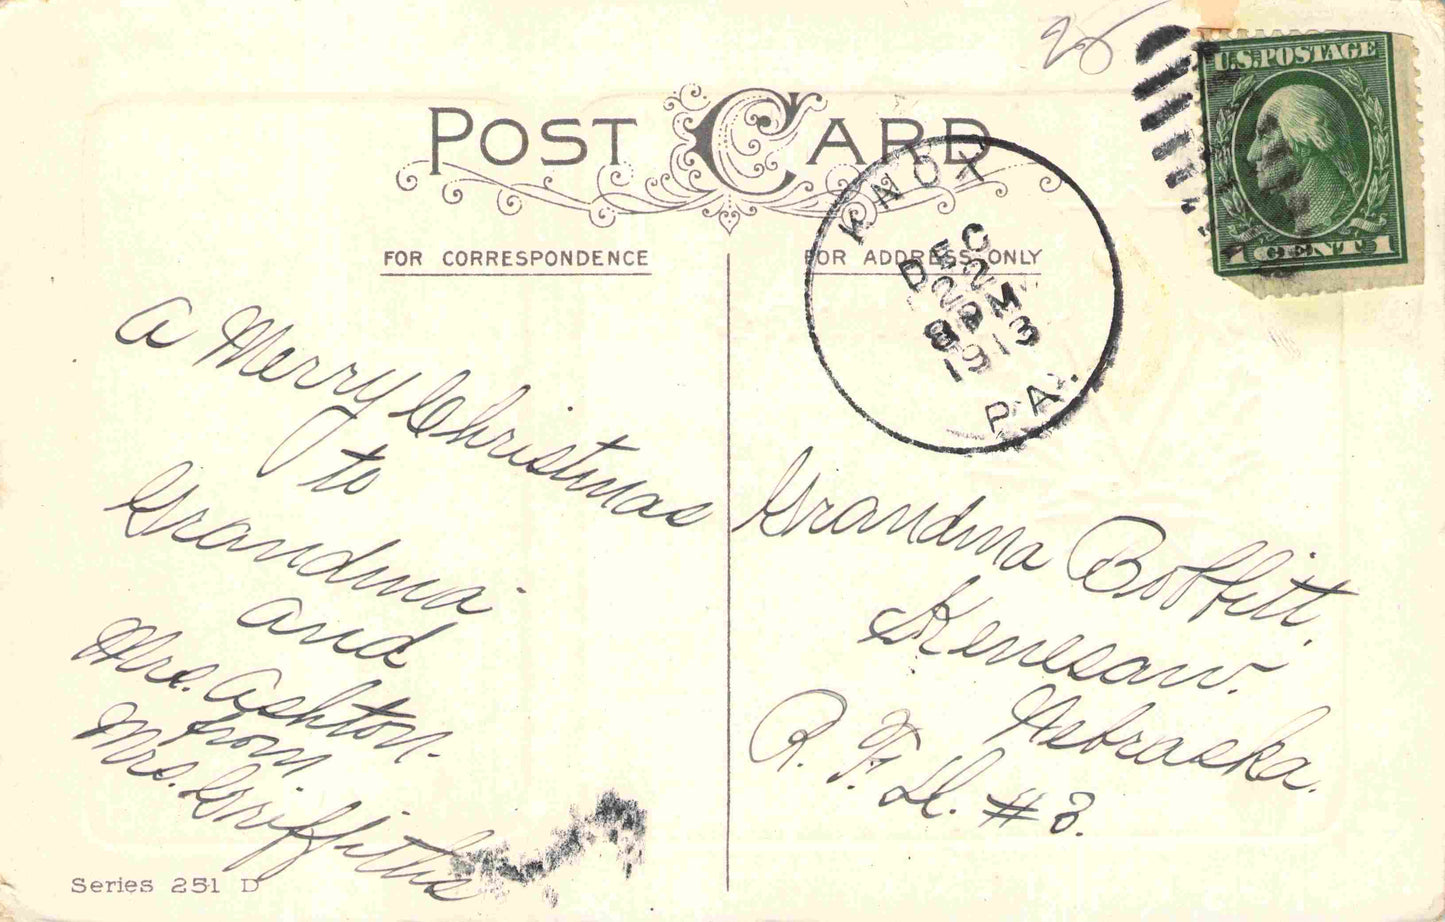 26
POST CARD
U.S. POSTAGE
1 CENT 1
KNOX
DEC
22
8 PM
1913
PA.
FOR CORRESPONDENCE
FOR ADDRESS ONLY
A Merry Christmas
to
Grandma
and
Mrs. Ashton.
from
Mrs. Griffiths
Series 251 D
Grandma Boffitt.
Kenesaw.
Nebraska.
R. F. D. #3.